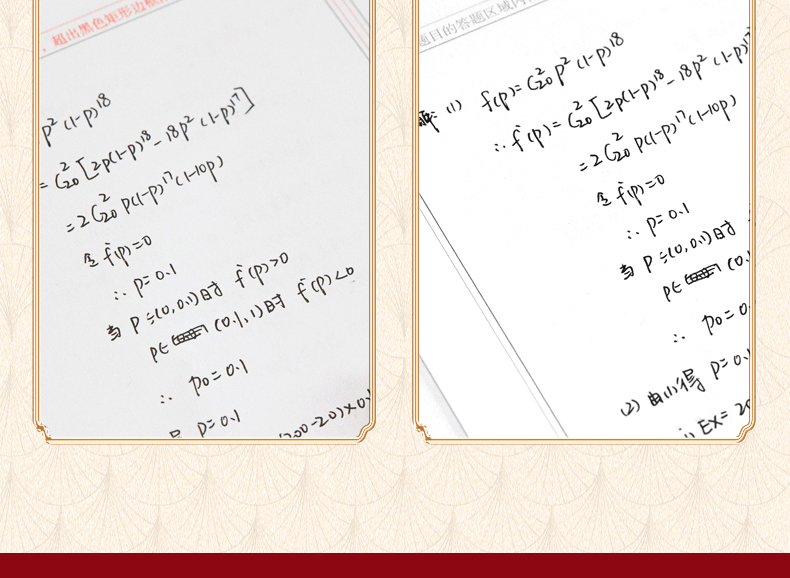 超出黑色矩形边框
p²(1-p)¹⁸
= C²₂₀[2p(1-p)¹⁸-18p²(1-p)¹⁷]
=2C²₂₀p(1-p)¹⁷(1-10p)
令f'(p)=0
∴p=0.1
当P=(0,0.1)时 f'(p)>0
p∈(0.1,1)时 f'(p)<0
∴ p₀=0.1
p=0.1
200-20)×0.
题目的答题区域内
解:(1) f(p)=C²₂₀p²(1-p)¹⁸
∴f'(p)=C²₂₀[2p(1-p)¹⁸-18p²(1-p)¹⁷
=2C²₂₀p(1-p)¹⁷(1-10p)
令f'(p)=0
∴p=0.1
当P=(0,0.1)时
p∈(0.
∴ p₀=0.
(2)由(1)得 p=0.1
EX=20